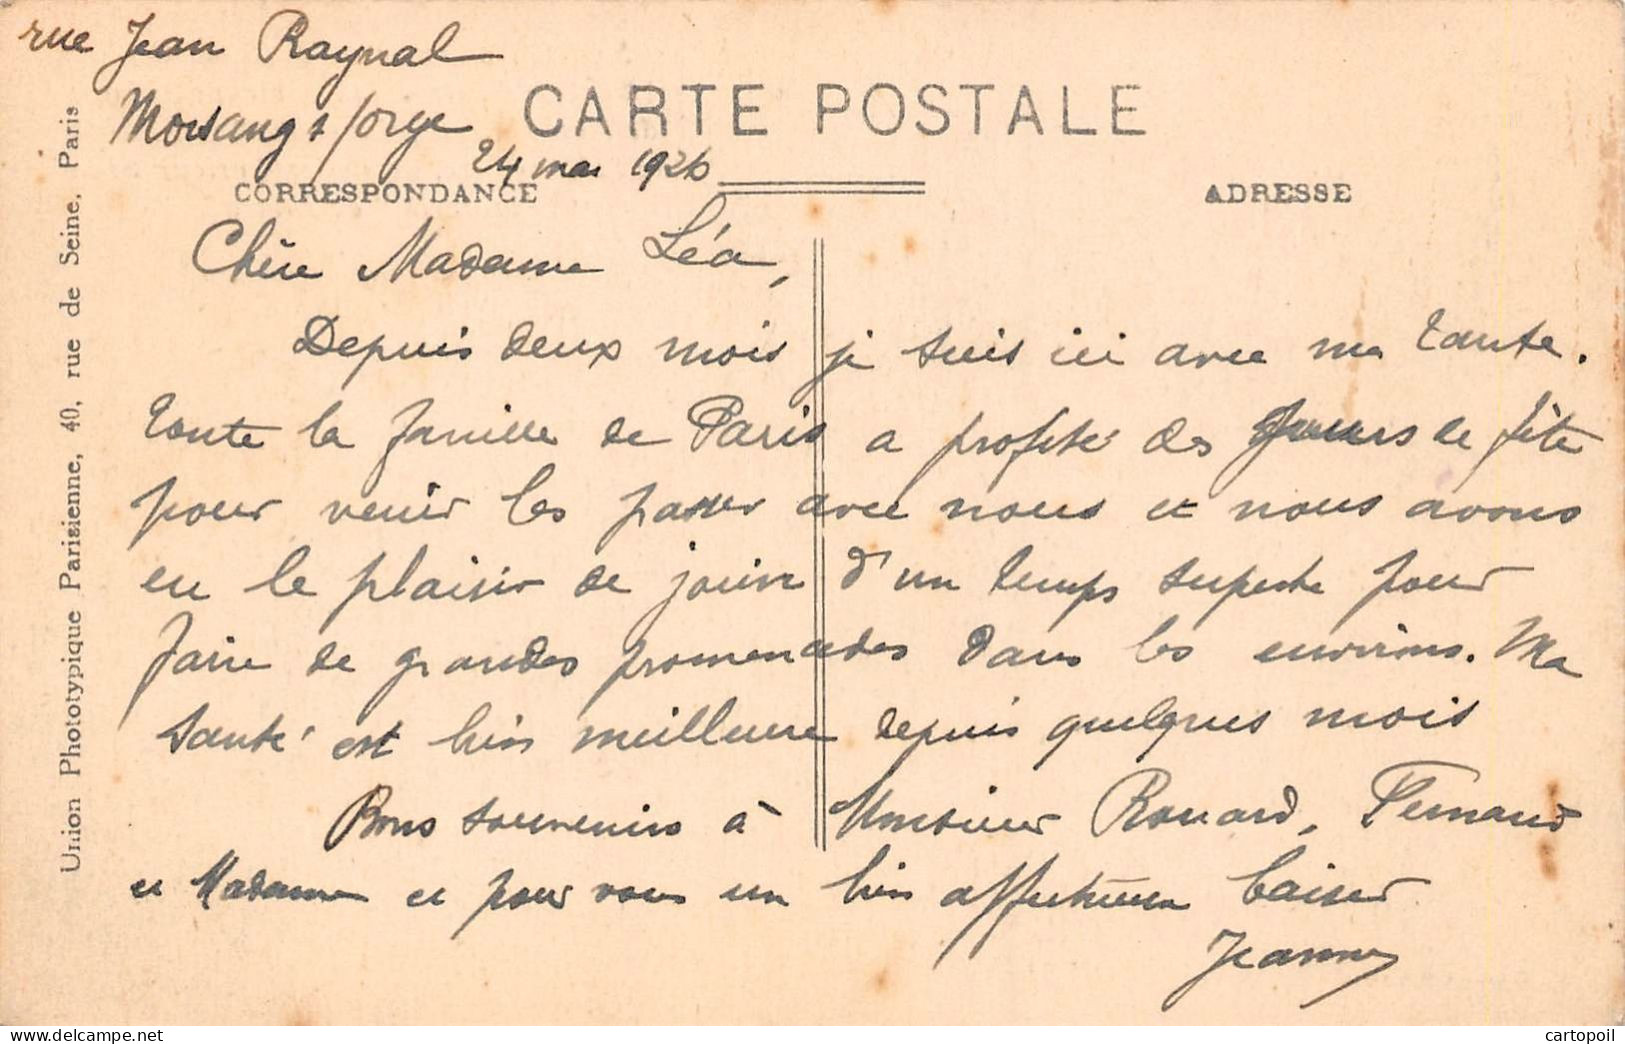 rue Jean Raynal
Morsang s/orge
CARTE POSTALE
24 mai 1926
CORRESPONDANCE
ADRESSE
Chère Madame Léa,
Depuis deux mois je suis ici avec ma tante.
Toute la famille de Paris a profité des jours de fête
pour venir les passer avec nous et nous avons
eu le plaisir de jouir d'un temps superbe pour
faire de grandes promenades dans les environs. Ma
santé est bien meilleure depuis quelques mois
Bons souvenirs à Monsieur Rouard, Fernand
et Madame et pour vous un bien affectueux baiser
Jeanne
Union Phototypique Parisienne, 40, rue de Seine, Paris
www.delcampe.net
cartopoil